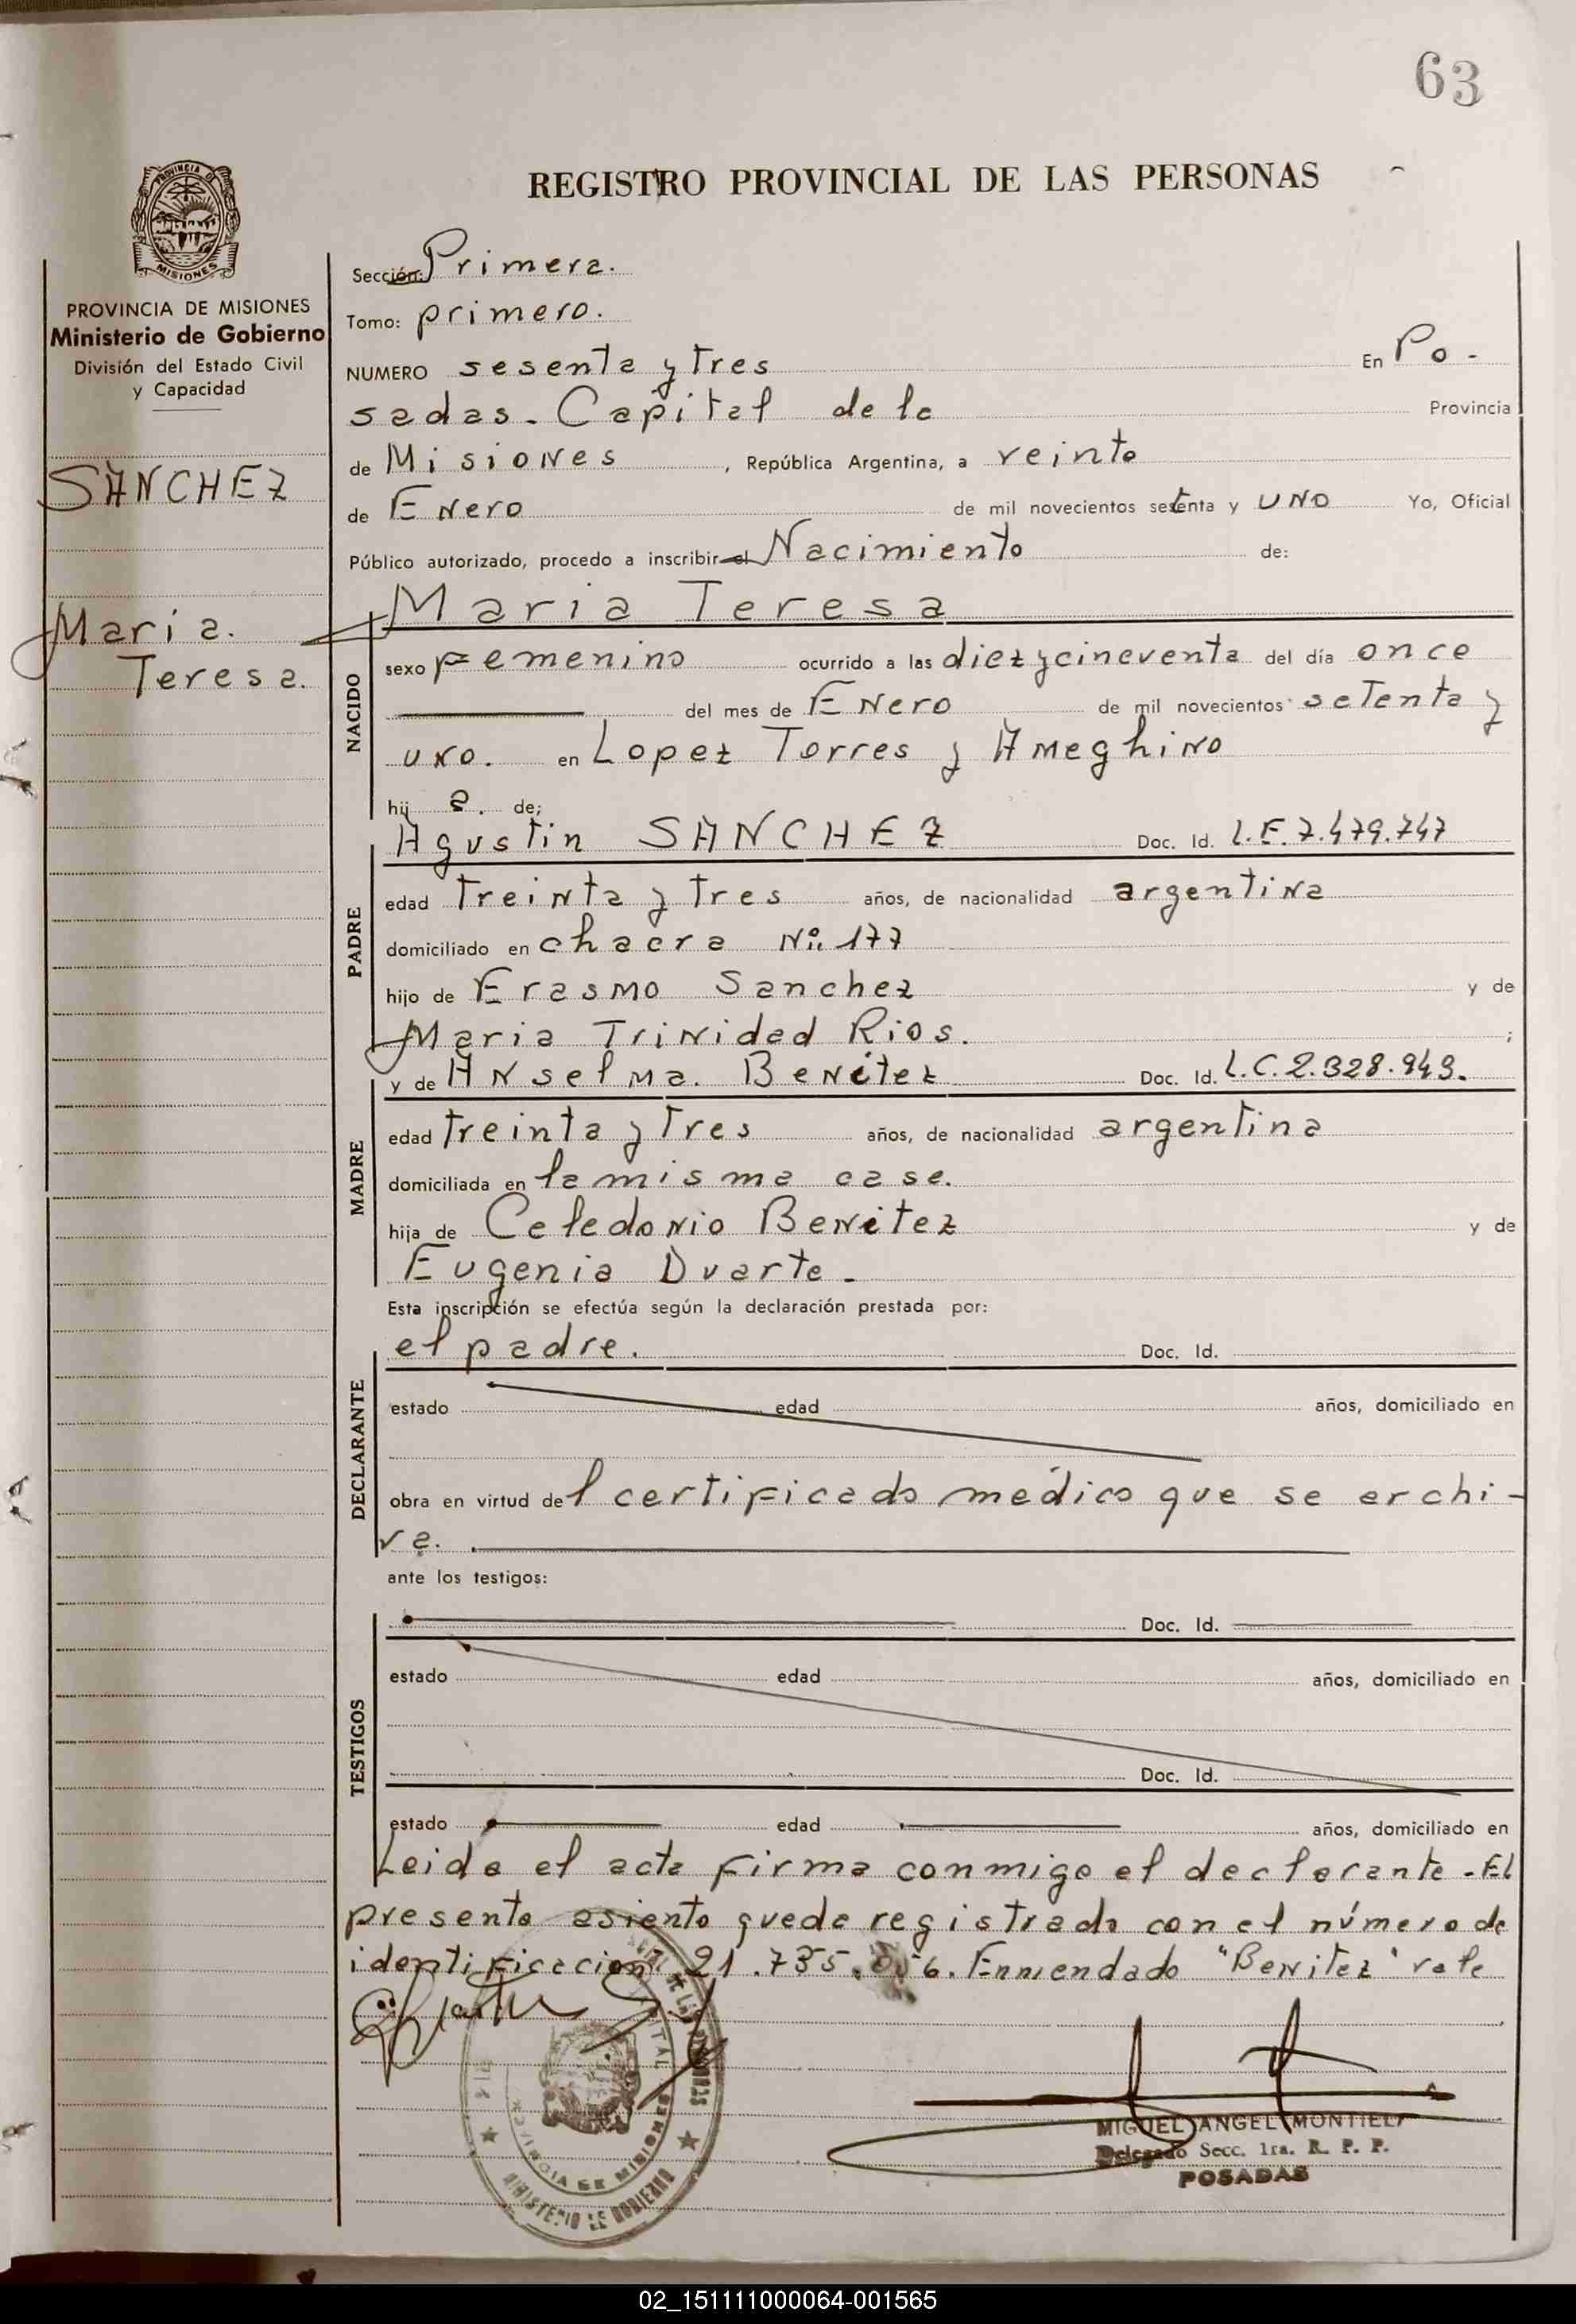 63
REGISTRO PROVINCIAL DE LAS PERSONAS
PROVINCIA DE MISIONES
Ministerio de Gobierno
División del Estado Civil
y Capacidad
SANCHEZ
Maria.
Teresa.
Sección: Primera.
Tomo: primero.
NUMERO sesenta y tres En Po-
sadas. Capital de la Provincia
de Misiones, República Argentina, a veinte
de Enero de mil novecientos setenta y uno Yo, Oficial
Público autorizado, procedo a inscribir el Nacimiento de:
Maria Teresa
NACIDO
sexo femenino ocurrido a las diez y cincuenta del día once
del mes de Enero de mil novecientos setenta y
uno. en Lopez Torres y Ameghino
hij a. de;
Agustin SANCHEZ Doc. Id. L.E.7.479.747
PADRE
edad treinta y tres años, de nacionalidad argentina
domiciliado en chacra Nº. 177
hijo de Erasmo Sanchez y de
Maria Trinidad Rios. ;
y de Anselma. Benitez Doc. Id. L.C.2.328.943.
MADRE
edad treinta y tres años, de nacionalidad argentina
domiciliada en la misma casa.
hija de Celedonio Benitez y de
Eugenia Duarte.-
Esta inscripción se efectúa según la declaración prestada por:
el padre. Doc. Id.
DECLARANTE
estado edad años, domiciliado en
obra en virtud del certificado médico que se archi-
va.
ante los testigos:
Doc. Id.
TESTIGOS
estado edad años, domiciliado en
Doc. Id.
estado edad años, domiciliado en
Leida el acta firma conmigo el declarante.-El
presente asiento queda registrado con el número de
identificacion 21.735. Enmendado "Benitez" vale
MIGUEL ANGEL MONTIEL
Delegado Secc. 1ra. R. P. P.
POSADAS
PROVINCIA DE MISIONES
MINISTERIO DE GOBIERNO
02_151111000064-001565